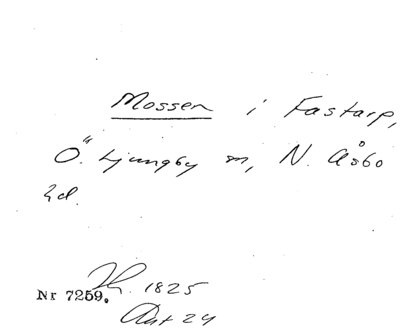 Mossen i Fastarp,
Ö. Ljungby sn, N. Åsbo
hd.
Nr 7259. 1825
Akt 24